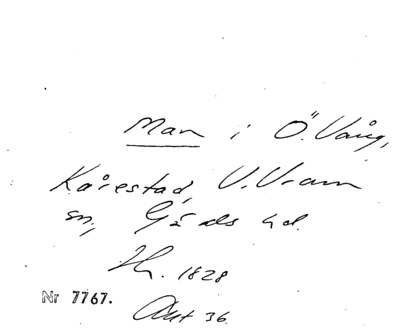 Man i Ö. Vång,
Kårestad, V. Vram
sn, Gärds hd.
Hr. 1828
Nr 7767.
Akt 36